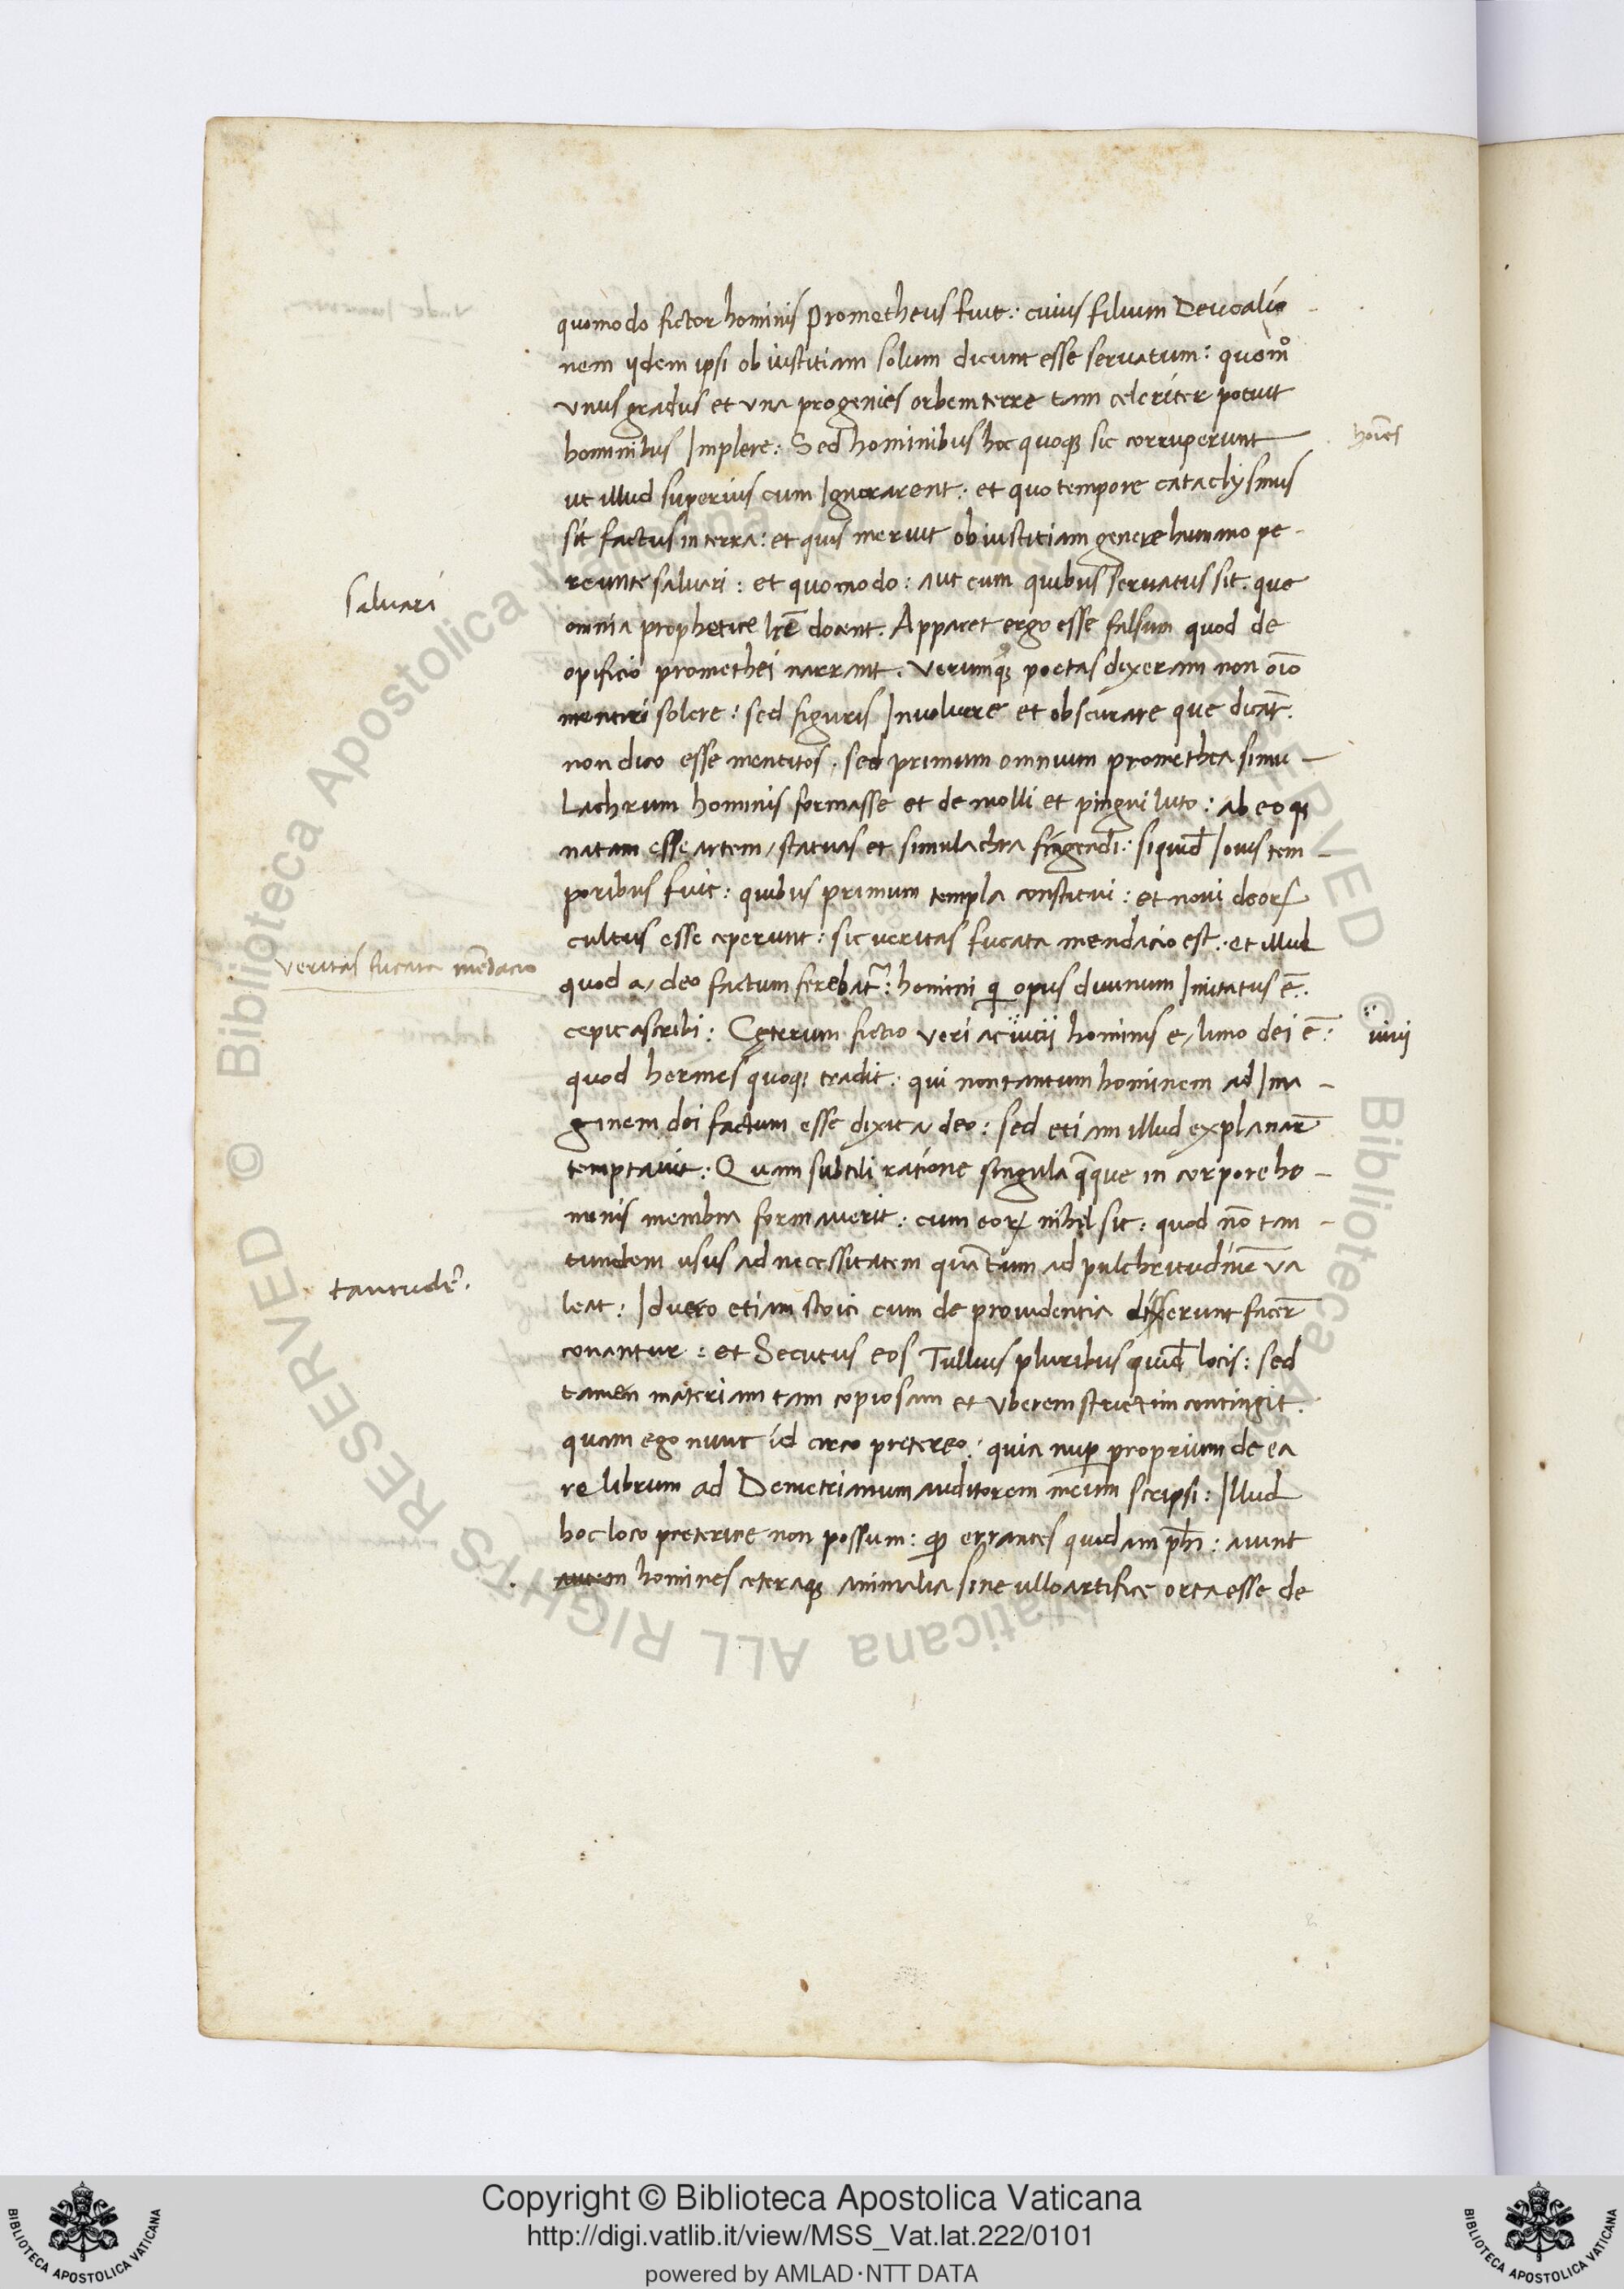 quomodo fictor hominis Prometheus fuit: cuius filium Deucalio
nem ijdem ipsi ob iustitiam solum dicunt esse servatum: quomº
vnus gradus et vna progenies orbem terre tam celeriter potuit
hominibus Implere: Sed hominibus hoc quoq3 sic corruperunt
hoīes
ut illud superius cum Ignorarent: et quo tempore cataclysmus
sit factus in terra: et quis meruit ob iustitiam genere humano pe-
reunte saluari: et quomodo: aut cum quibus servatus sit. que
saluari
omnia prophetice lr̄e docent. Apparet ergo esse falsum quod de
opificio promethei narrant. verumq3 poetas dixeram non oīo
mentiri solere: sed figuris Inuoluere et obscurare que dicāt.
non dico esse mentitos. sed primum omnium promethea simu-
lachrum hominis formasse et de molli et pingui luto: ab eoq3
natam esse artem/statuas et simulachra fingendi: siquid̄ Iouis tem-
poribus fuit: quibus primum templa constitui: et noui deoꝝ
cultus esse ceperunt: sic veritas fucata mendacio est: et illud
veritas fucata mēdacio
quod a/deo factum ferebat᷑: homini q̇ opus diuinum Imitatus ē.
cepit ascribi: Cęterum fictio veri ac iucij hominis e/limo dei ē:
uiui
quod hermes quoq3 tradit: qui non tantum hominem ad Ima-
ginem dei factum esse dixit a deo: sed etiam illud explanar̄
temptauit: Quam subtili ratione singula q̄que in corpore ho-
minis membra formauerit: cum eoꝝ nihil sit: quod nō tan-
tundem usus ad necessitatem quātum ad pulchritudinē va
tantundē.
leat: Id vero etiam stoici cum de prouidentia disserunt facer̄
conantur: et Secutus eos Tullius pluribus quid̄ locis: sed
tamen materiam tam copiosam et vberem strictim contingit.
quam ego nunc id circo pretereo: quia nup̄ proprium de ea
re librum ad Demetrianum auditorem meum scripsi: Illud
hoc loco preterire non possum: qꝫ errantes quidam ph̄i: aiunt
homines ceteraq3 animalia sine ullo artifice orta esse de
Copyright © Biblioteca Apostolica Vaticana
http://digi.vatlib.it/view/MSS_Vat.lat.222/0101
powered by AMLAD·NTT DATA
BIBLIOTECA APOSTOLICA VATICANA
BIBLIOTECA APOSTOLICA VATICANA
© Biblioteca Apostolica Vaticana ALL RIGHTS RESERVED